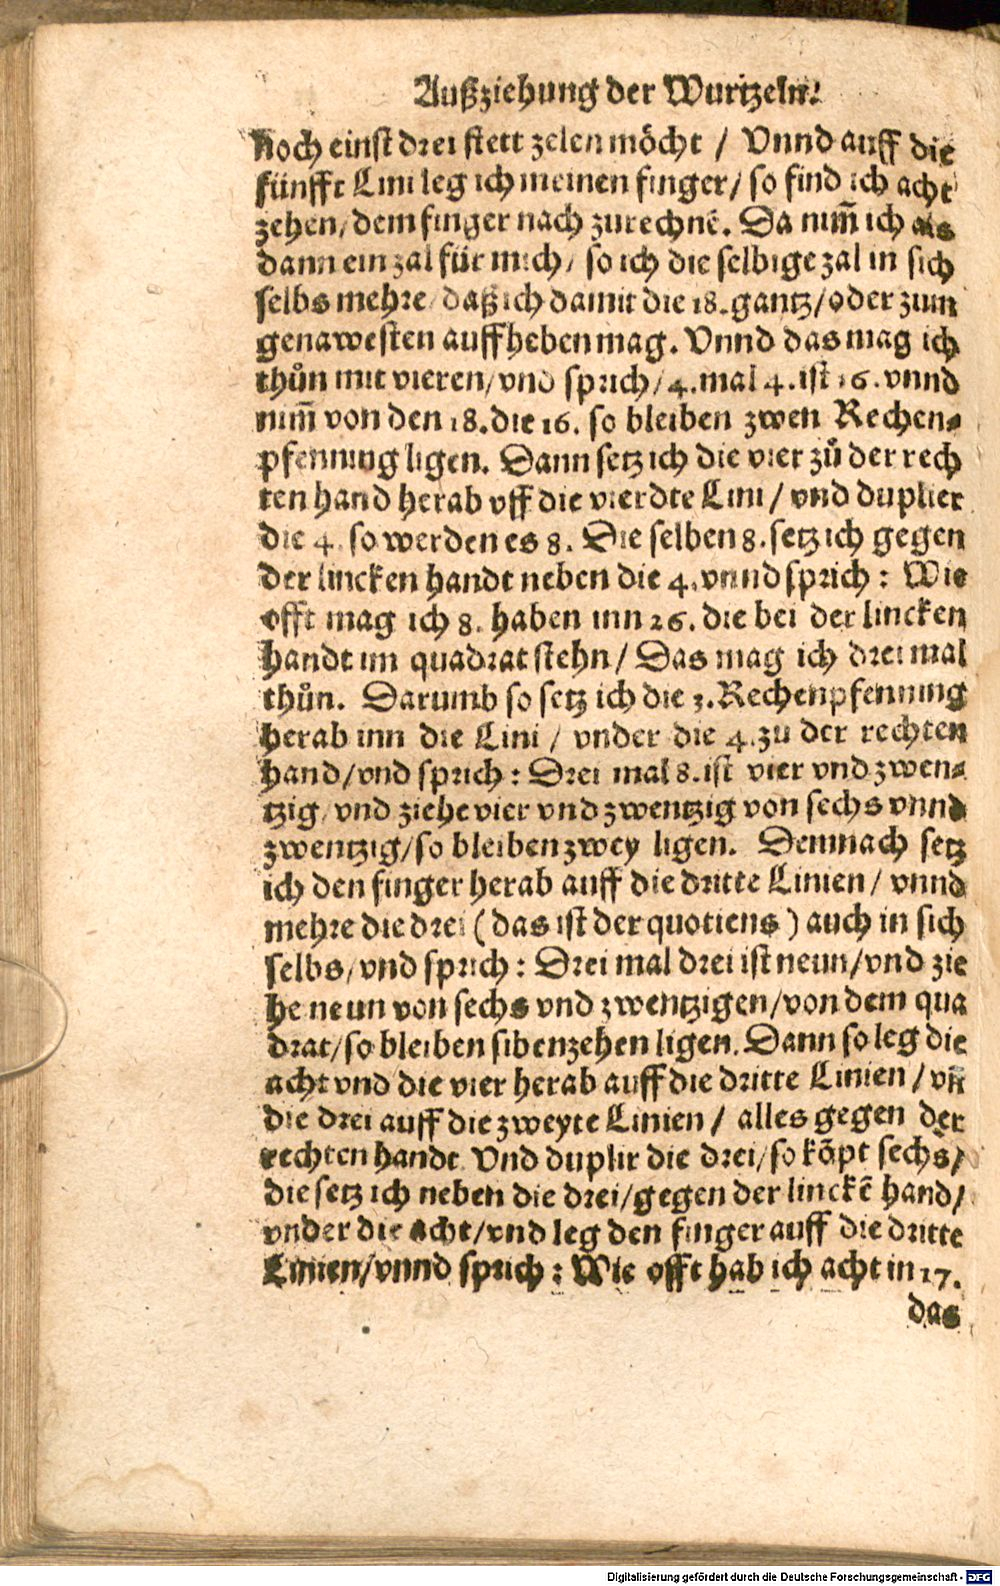 Außziehung der Wurtzeln.
noch einst drei stett zelen möcht / Vnnd auff die
fünfft Lini leg ich meinen finger / so find ich acht
zehen / dem finger nach zurechnē. Da nim̄ ich als
dann ein zal für mich / so ich die selbige zal in sich
selbs mehre / daß ich damit die 18. gantz / oder zum
genawesten auffheben mag. Vnnd das mag ich
thůn mit vieren / vnd sprich / 4. mal 4. ist 16. vnnd
nim̄ von den 18. die 16. so bleiben zwen Rechen⸗
pfenning ligen. Dann setz ich die vier zů der rech
ten hand herab vff die vierdte Lini / vnd duplier
die 4. so werden es 8. Die selben 8. setz ich gegen
der lincken handt neben die 4. vnnd sprich : Wie
offt mag ich 8. haben inn 26. die bei der lincken
handt im quadrat stehn / Das mag ich drei mal
thůn. Darumb so setz ich die 3. Rechenpfenning
herab inn die Lini / vnder die 4. zu der rechten
hand / vnd sprich : Drei mal 8. ist vier vnd zwen⸗
tzig / vnd ziehe vier vnd zwentzig von sechs vnnd
zwentzig / so bleiben zwey ligen. Demnach setz
ich den finger herab auff die dritte Linien / vnnd
mehre die drei ( das ist der quotiens ) auch in sich
selbs / vnd sprich : Drei mal drei ist neun / vnd zie
he neun von sechs vnd zwentzigen / von dem qua
drat / so bleiben sibenzehen ligen. Dann so leg die
acht vnd die vier herab auff die dritte Linien / vn̄
die drei auff die zweyte Linien / alles gegen der
rechten handt. Vnd duplir die drei / so kōpt sechs /
die setz ich neben die drei / gegen der linckē hand /
vnder die acht / vnd leg den finger auff die dritte
Linien / vnnd sprich : Wie offt hab ich acht in 17.
das
Digitalisierung gefördert durch die Deutsche Forschungsgemeinschaft - DFG